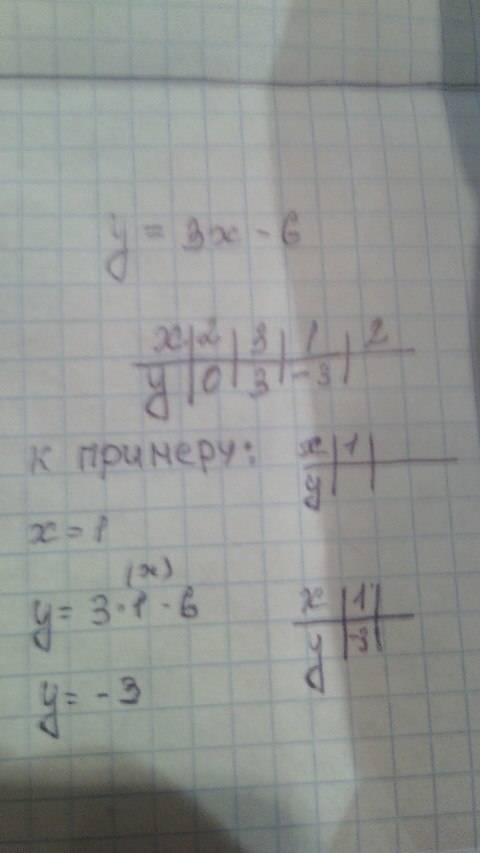 y = 3x - 6
x | 2 | 3 | 1 | 2
y | 0 | 3 | -3 |
к примеру:
x | 1 |
y | |
x = 1
(x)
y = 3·1 - 6
x | 1 |
y | -3 |
y = -3